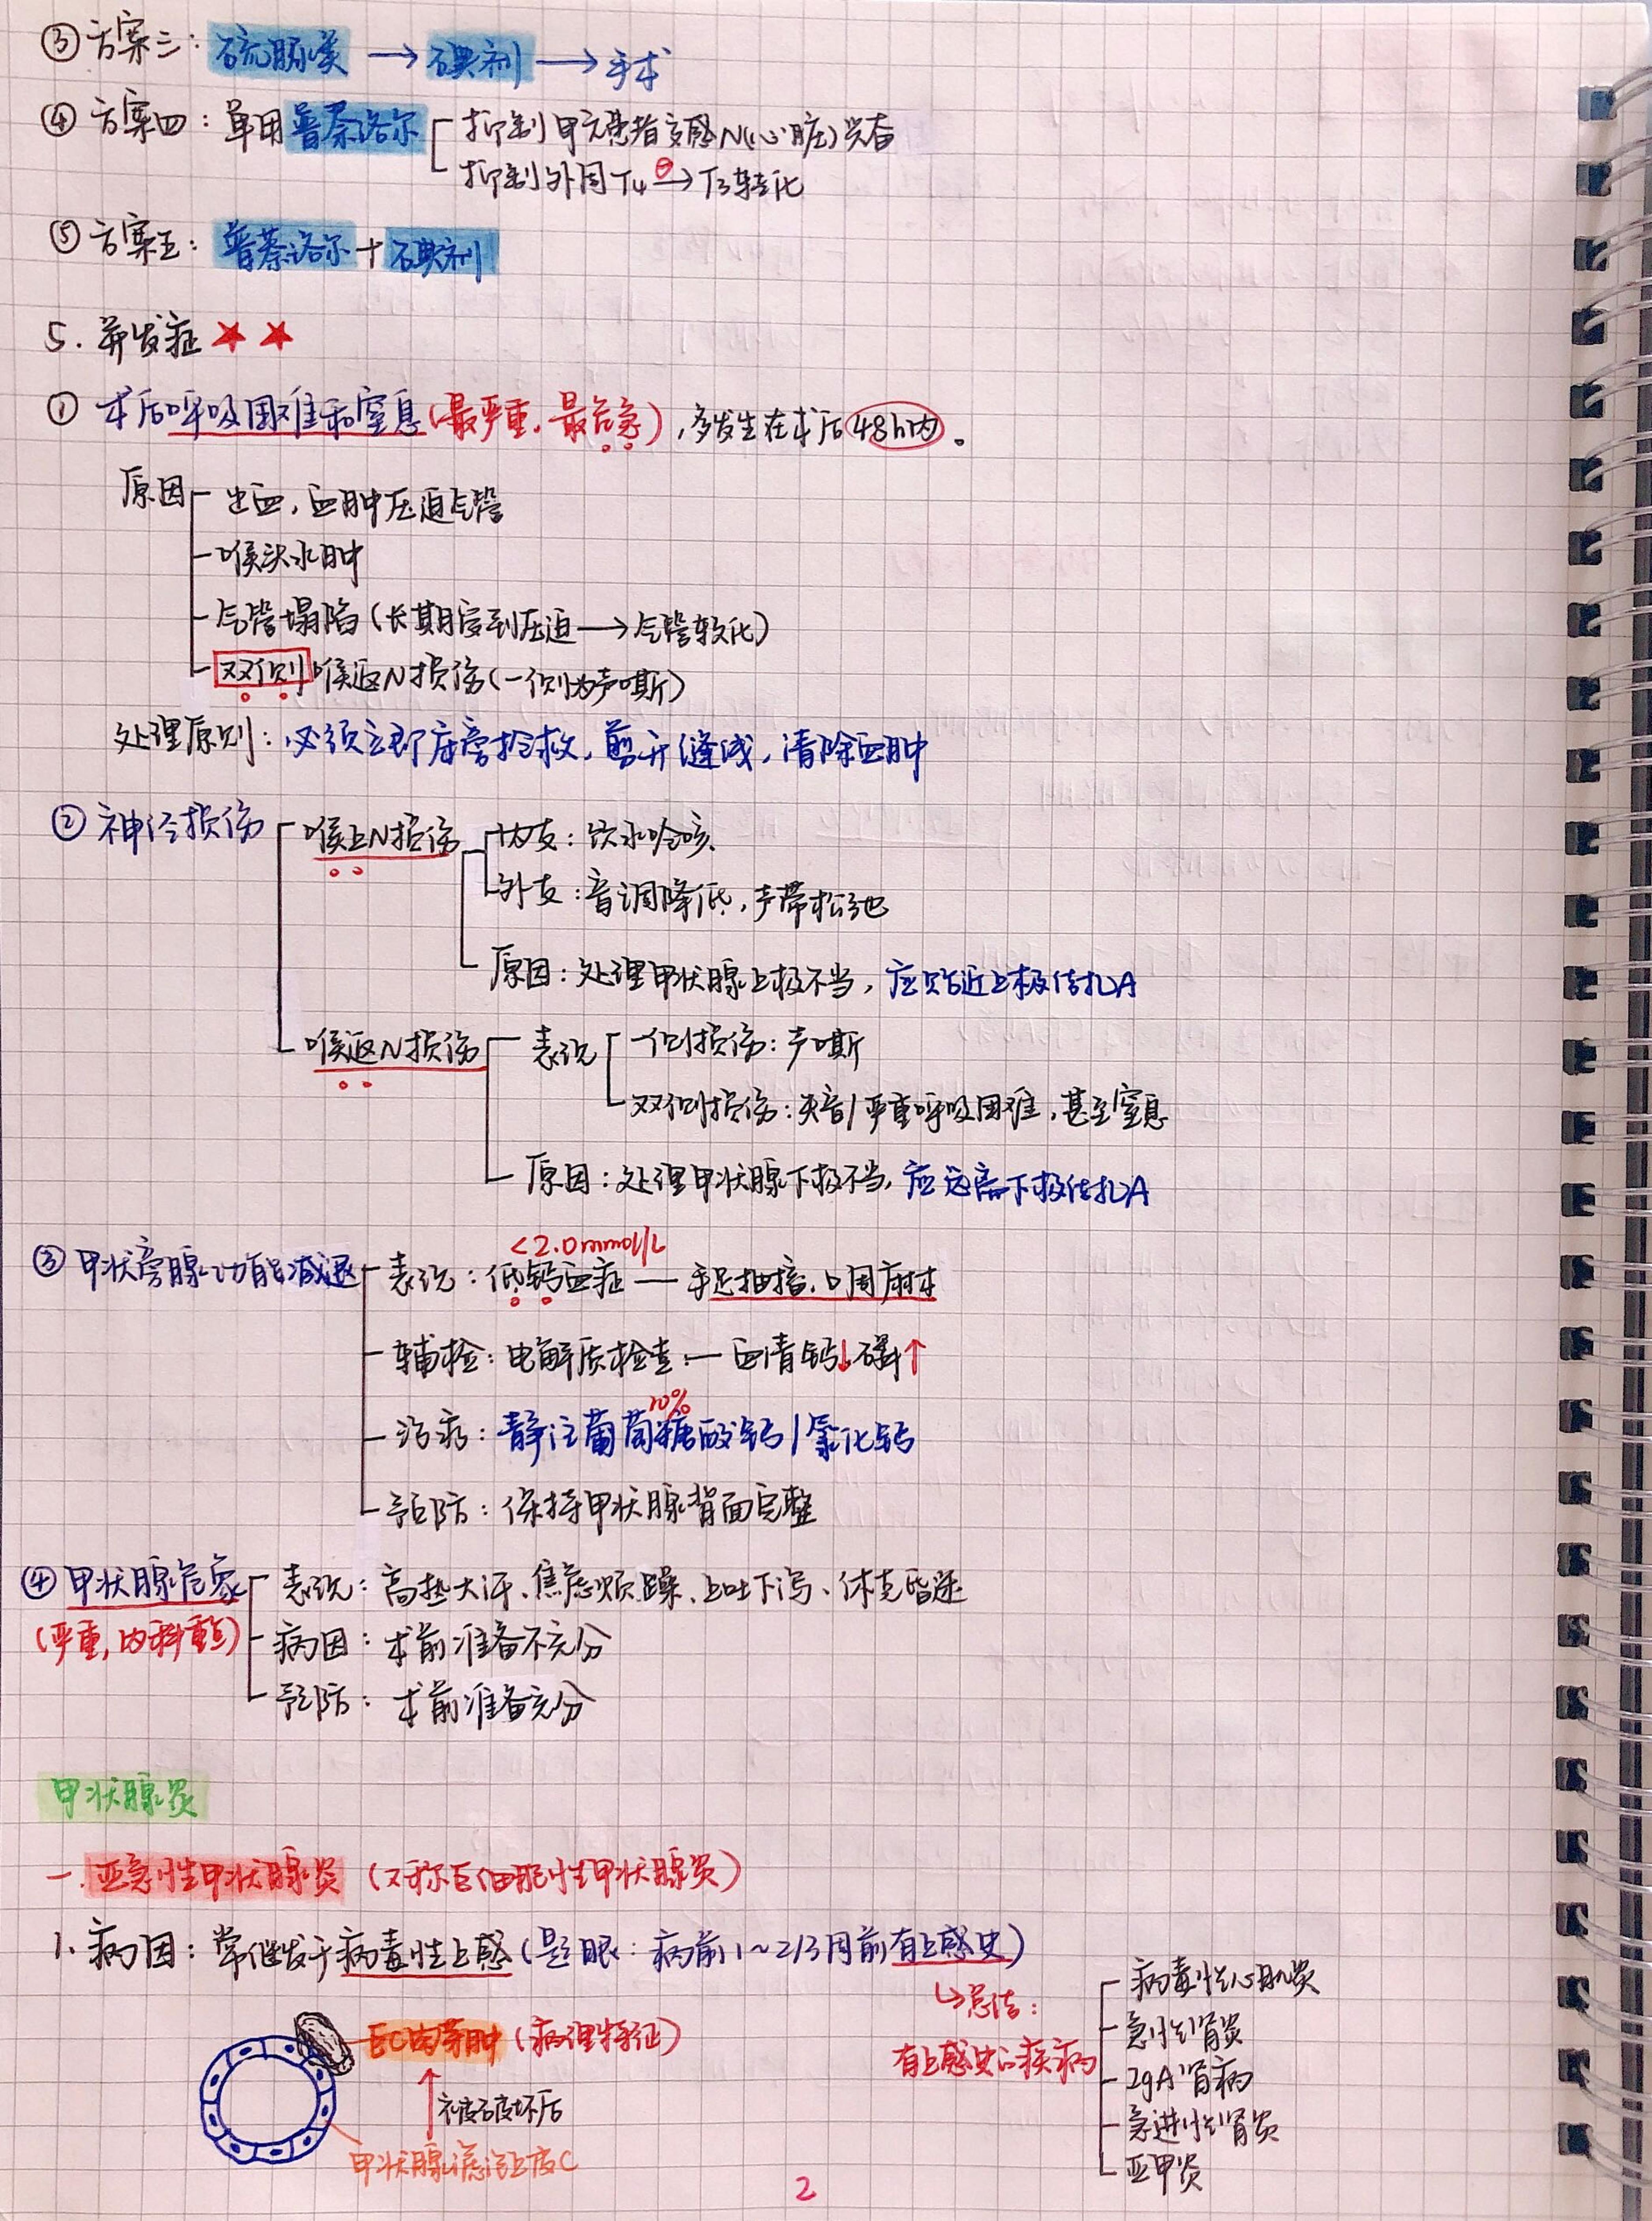 ③ 方案三：硫脲类 → 碘剂 → 手术
④ 方案四：单用普萘洛尔
抑制甲亢患者交感N(心脏)兴奋
抑制外周T4 ⊖→ T3转化
⑤ 方案五：普萘洛尔＋碘剂
5. 并发症 ★ ★
① 术后呼吸困难和窒息(最严重，最危急)，多发生在术后48h内。
原因
出血，血肿压迫气管
喉头水肿
气管塌陷(长期受到压迫→气管软化)
双侧喉返N损伤(一侧为声嘶)
处理原则：必须立即床旁抢救，剪开缝线，清除血肿
② 神经损伤
喉上N损伤
内支：饮水呛咳
外支：音调降低，声带松弛
原因：处理甲状腺上极不当，应贴近上极结扎A
喉返N损伤
表现
一侧损伤：声嘶
双侧损伤：失音/严重呼吸困难，甚至窒息
原因：处理甲状腺下极不当，应远离下极结扎A
<2.0mmol/L
③ 甲状旁腺功能减退
表现：低钙血症 — 手足抽搐、口周麻木
辅检：电解质检查 — 血清钙↓磷↑
10%
治疗：静注葡萄糖酸钙/氯化钙
预防：保持甲状腺背面完整
④ 甲状腺危象
(严重，内科重点)
表现：高热大汗、焦虑烦躁、上吐下泻、休克昏迷
病因：术前准备不充分
预防：术前准备充分
甲状腺炎
一. 亚急性甲状腺炎 (又称巨细胞性甲状腺炎)
1. 病因：常继发于病毒性上感(题眼：病前1～2/3周前有上感史)
↳总结：
有上感史的疾病
病毒性心肌炎
急性肾炎
IgA肾病
急进性肾炎
亚甲炎
巨C肉芽肿(病理特征)
↑被破坏后
甲状腺滤泡上皮C
2